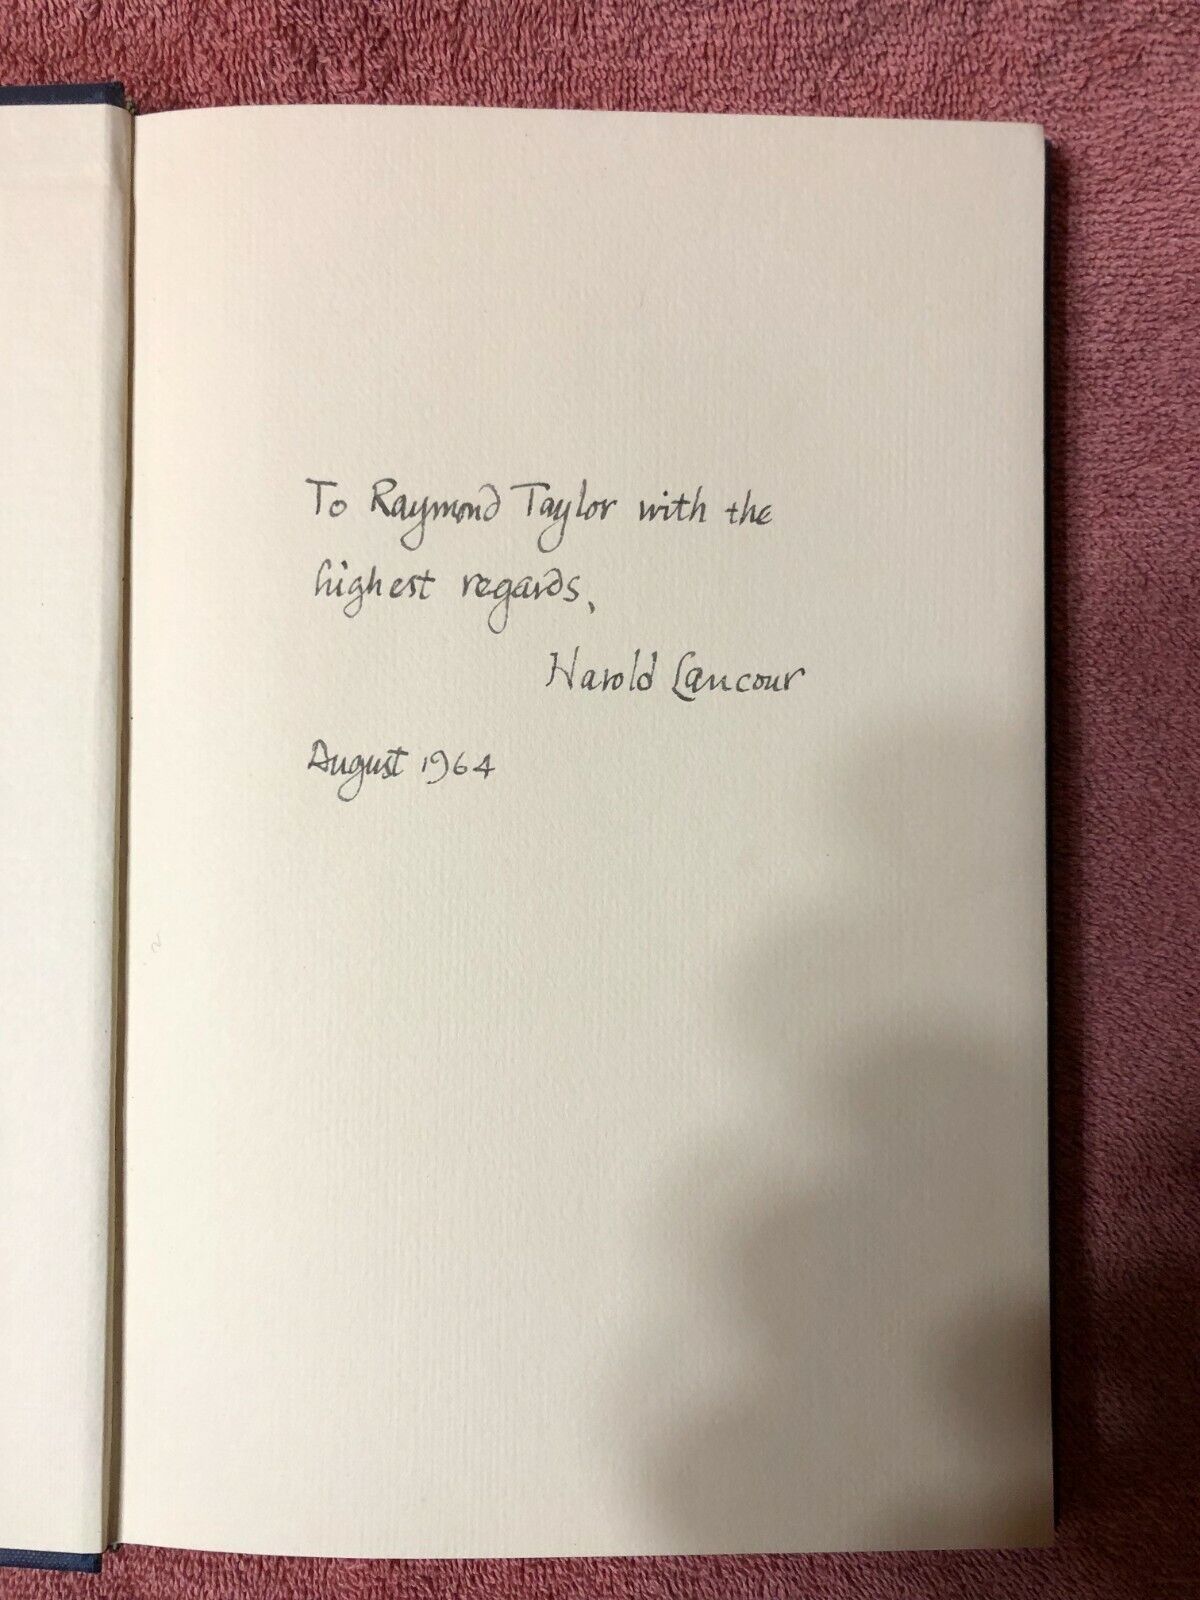 To Raymond Taylor with the
highest regards,
Harold Lancour
August 1964